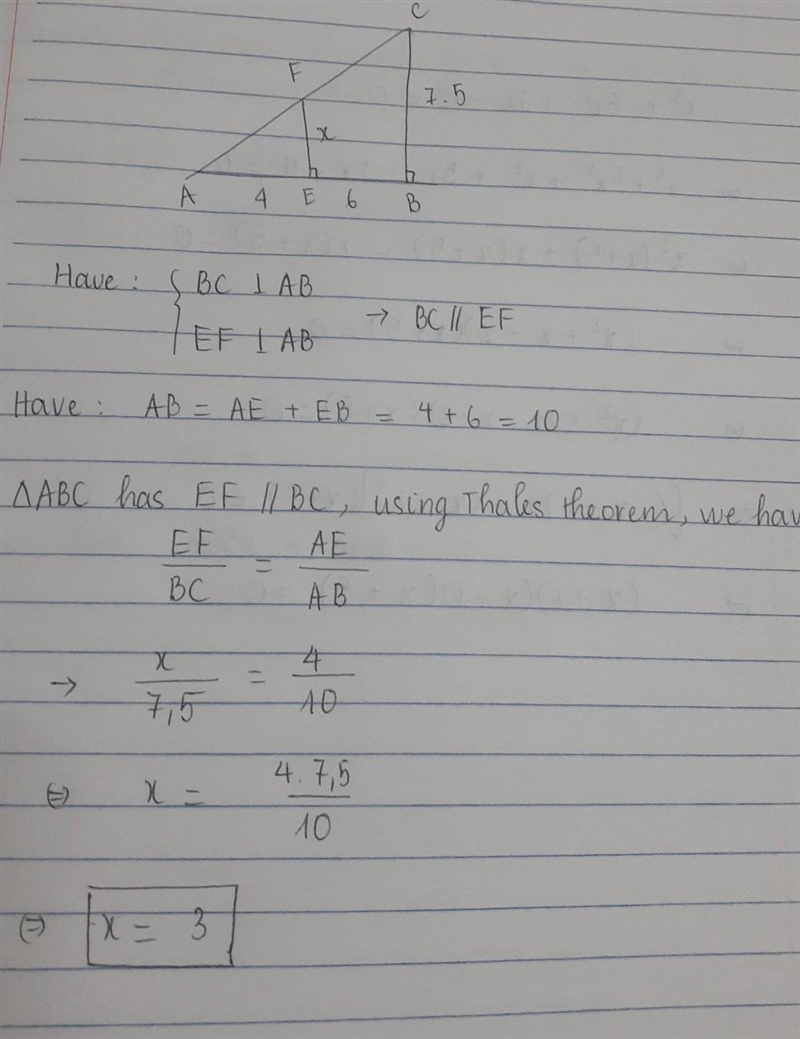 C
F
7.5
x
A 4 E 6 B
Have : { BC ⊥ AB
EF ⊥ AB
→ BC // EF
Have : AB = AE + EB = 4 + 6 = 10
ΔABC has EF // BC, using Thales theorem, we hav
EF/BC = AE/AB
→ x/7,5 = 4/10
⇔ x = 4.7,5/10
⇔ x = 3